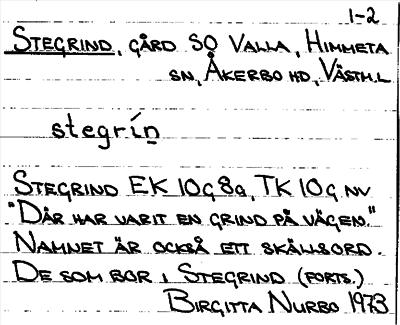 1-2
STEGRIND, GÅRD SO VALLA, HIMMETA
SN, ÅKERBO HD, VÄSTM.L
stegríṉ
STEGRIND EK 10G8a, TK 10G NV
"DÄR HAR VARIT EN GRIND PÅ VÄGEN."
NAMNET ÄR OCKSÅ ETT SKÄLLSORD.
DE SOM BOR I STEGRIND (FORTS.)
BIRGITTA NURBO 1973